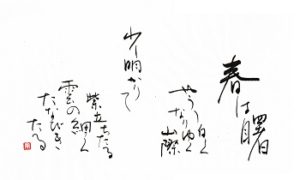 春は曙
やう〱白く
なりゆく
山際
少し明かりて
紫立ちたる
雲の細く
たなびき
たる